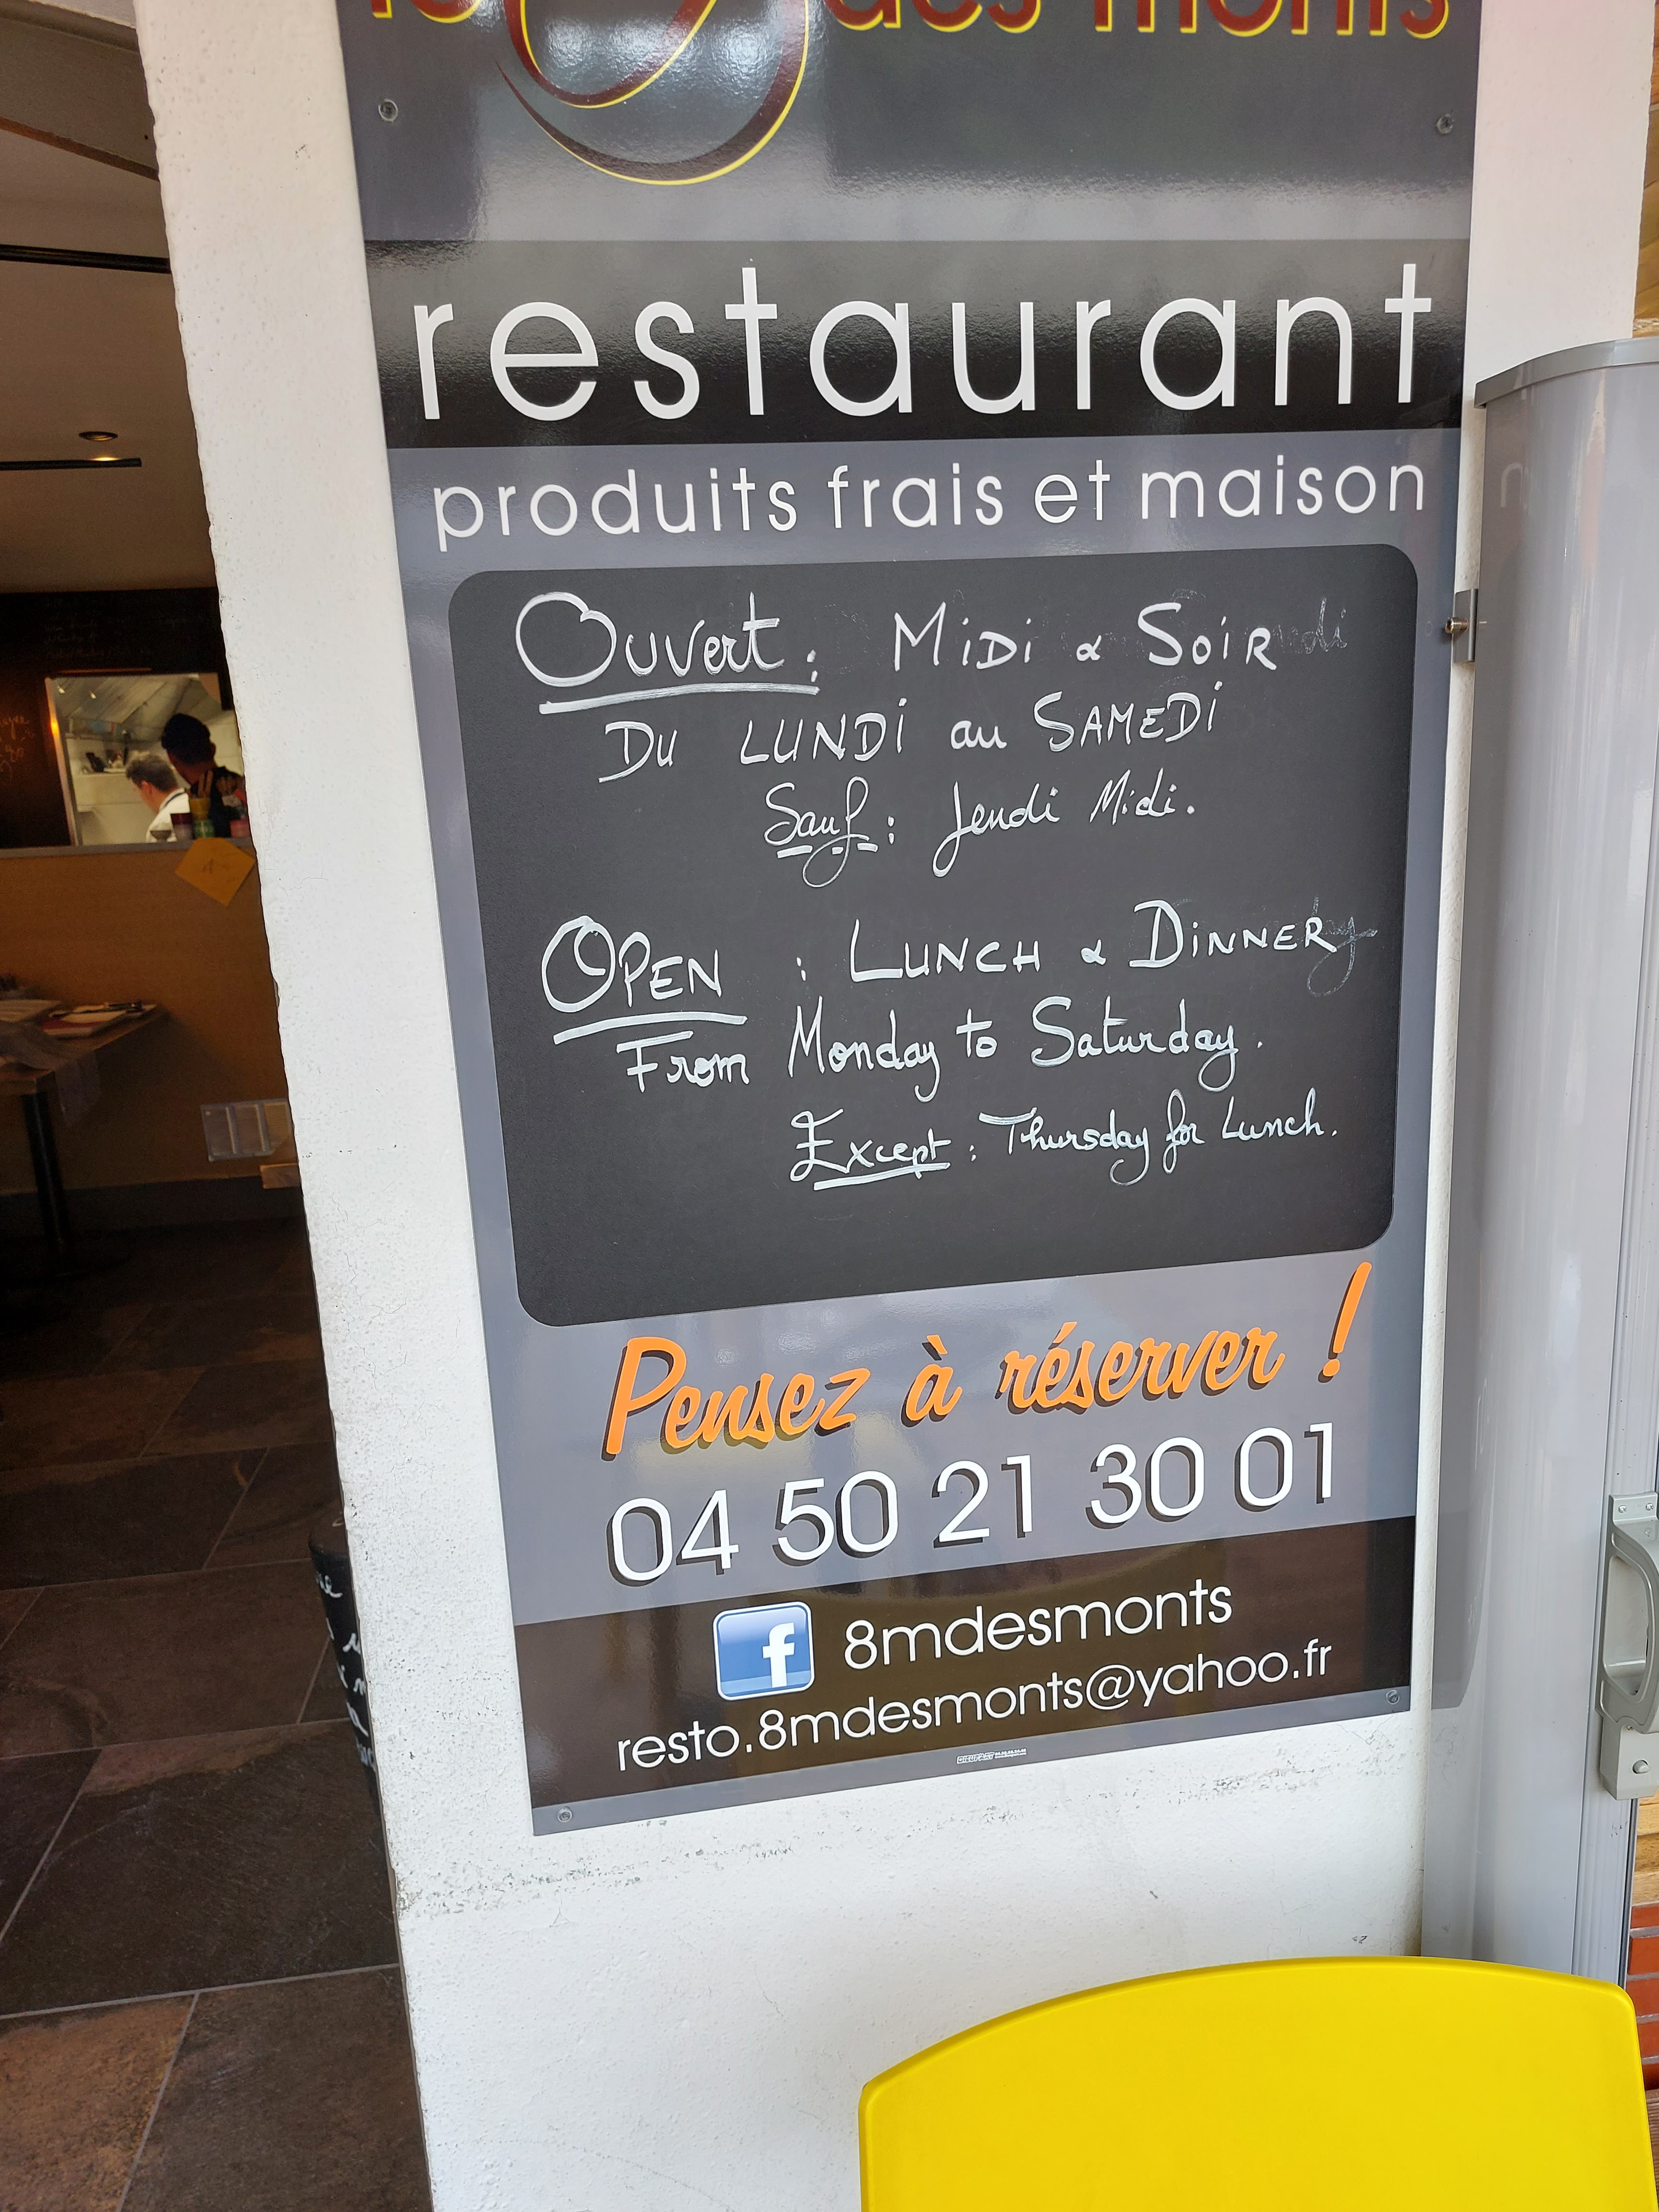 des monts
restaurant
produits frais et maison
Ouvert : MiDi & SOiR
DU LUNDi au SAMEDi
Sauf : Jeudi Midi.
OPEN : LUNCH & DiNNER
From Monday to Saturday.
Except : Thursday for Lunch.
Pensez à réserver !
04 50 21 30 01
f 8mdesmonts
resto.8mdesmonts@yahoo.fr